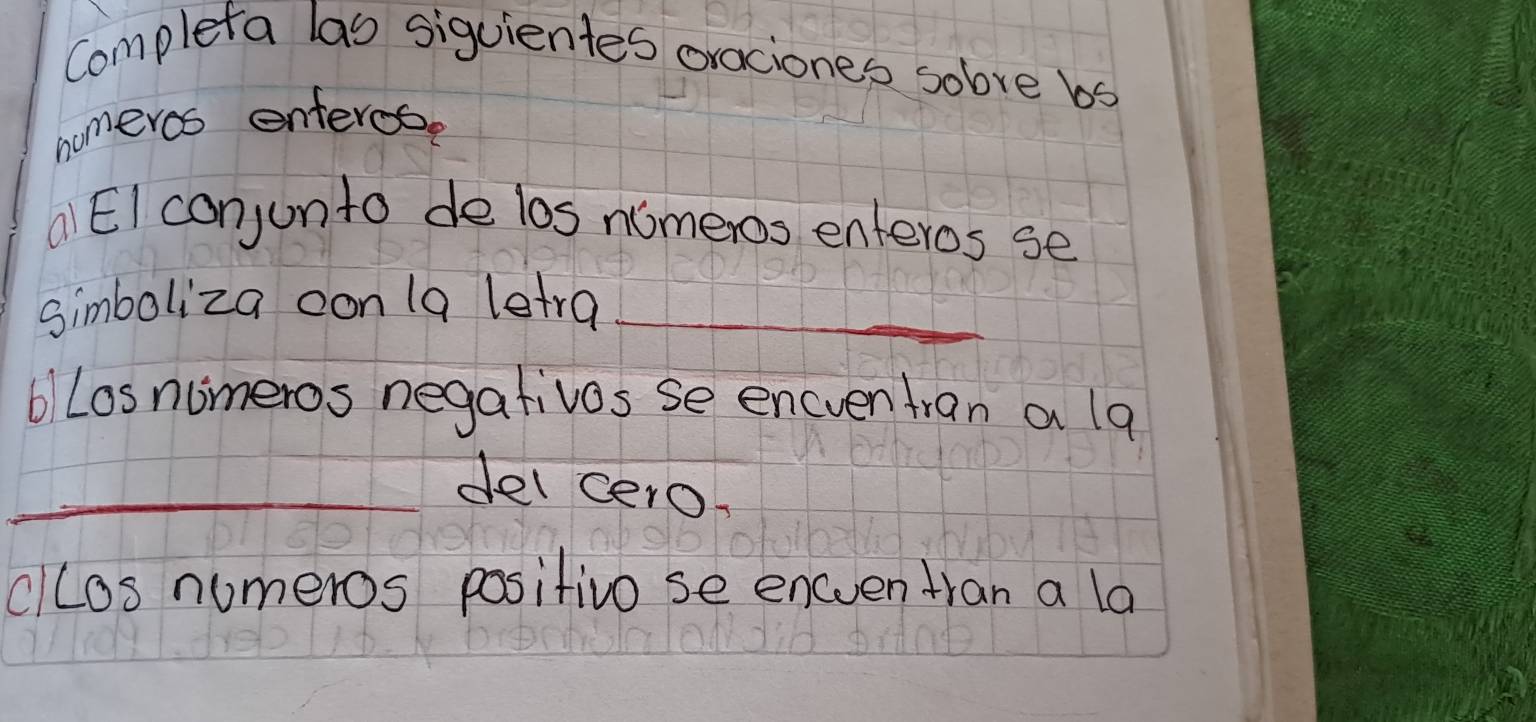 Completa las siguientes oraciones sobre los
numeros enteros.
a) El conjunto de los números enteros se
simboliza con la letra
b) Los números negativos se encuentran a la
del cero.
c) Los numeros positivo se encuentran a la